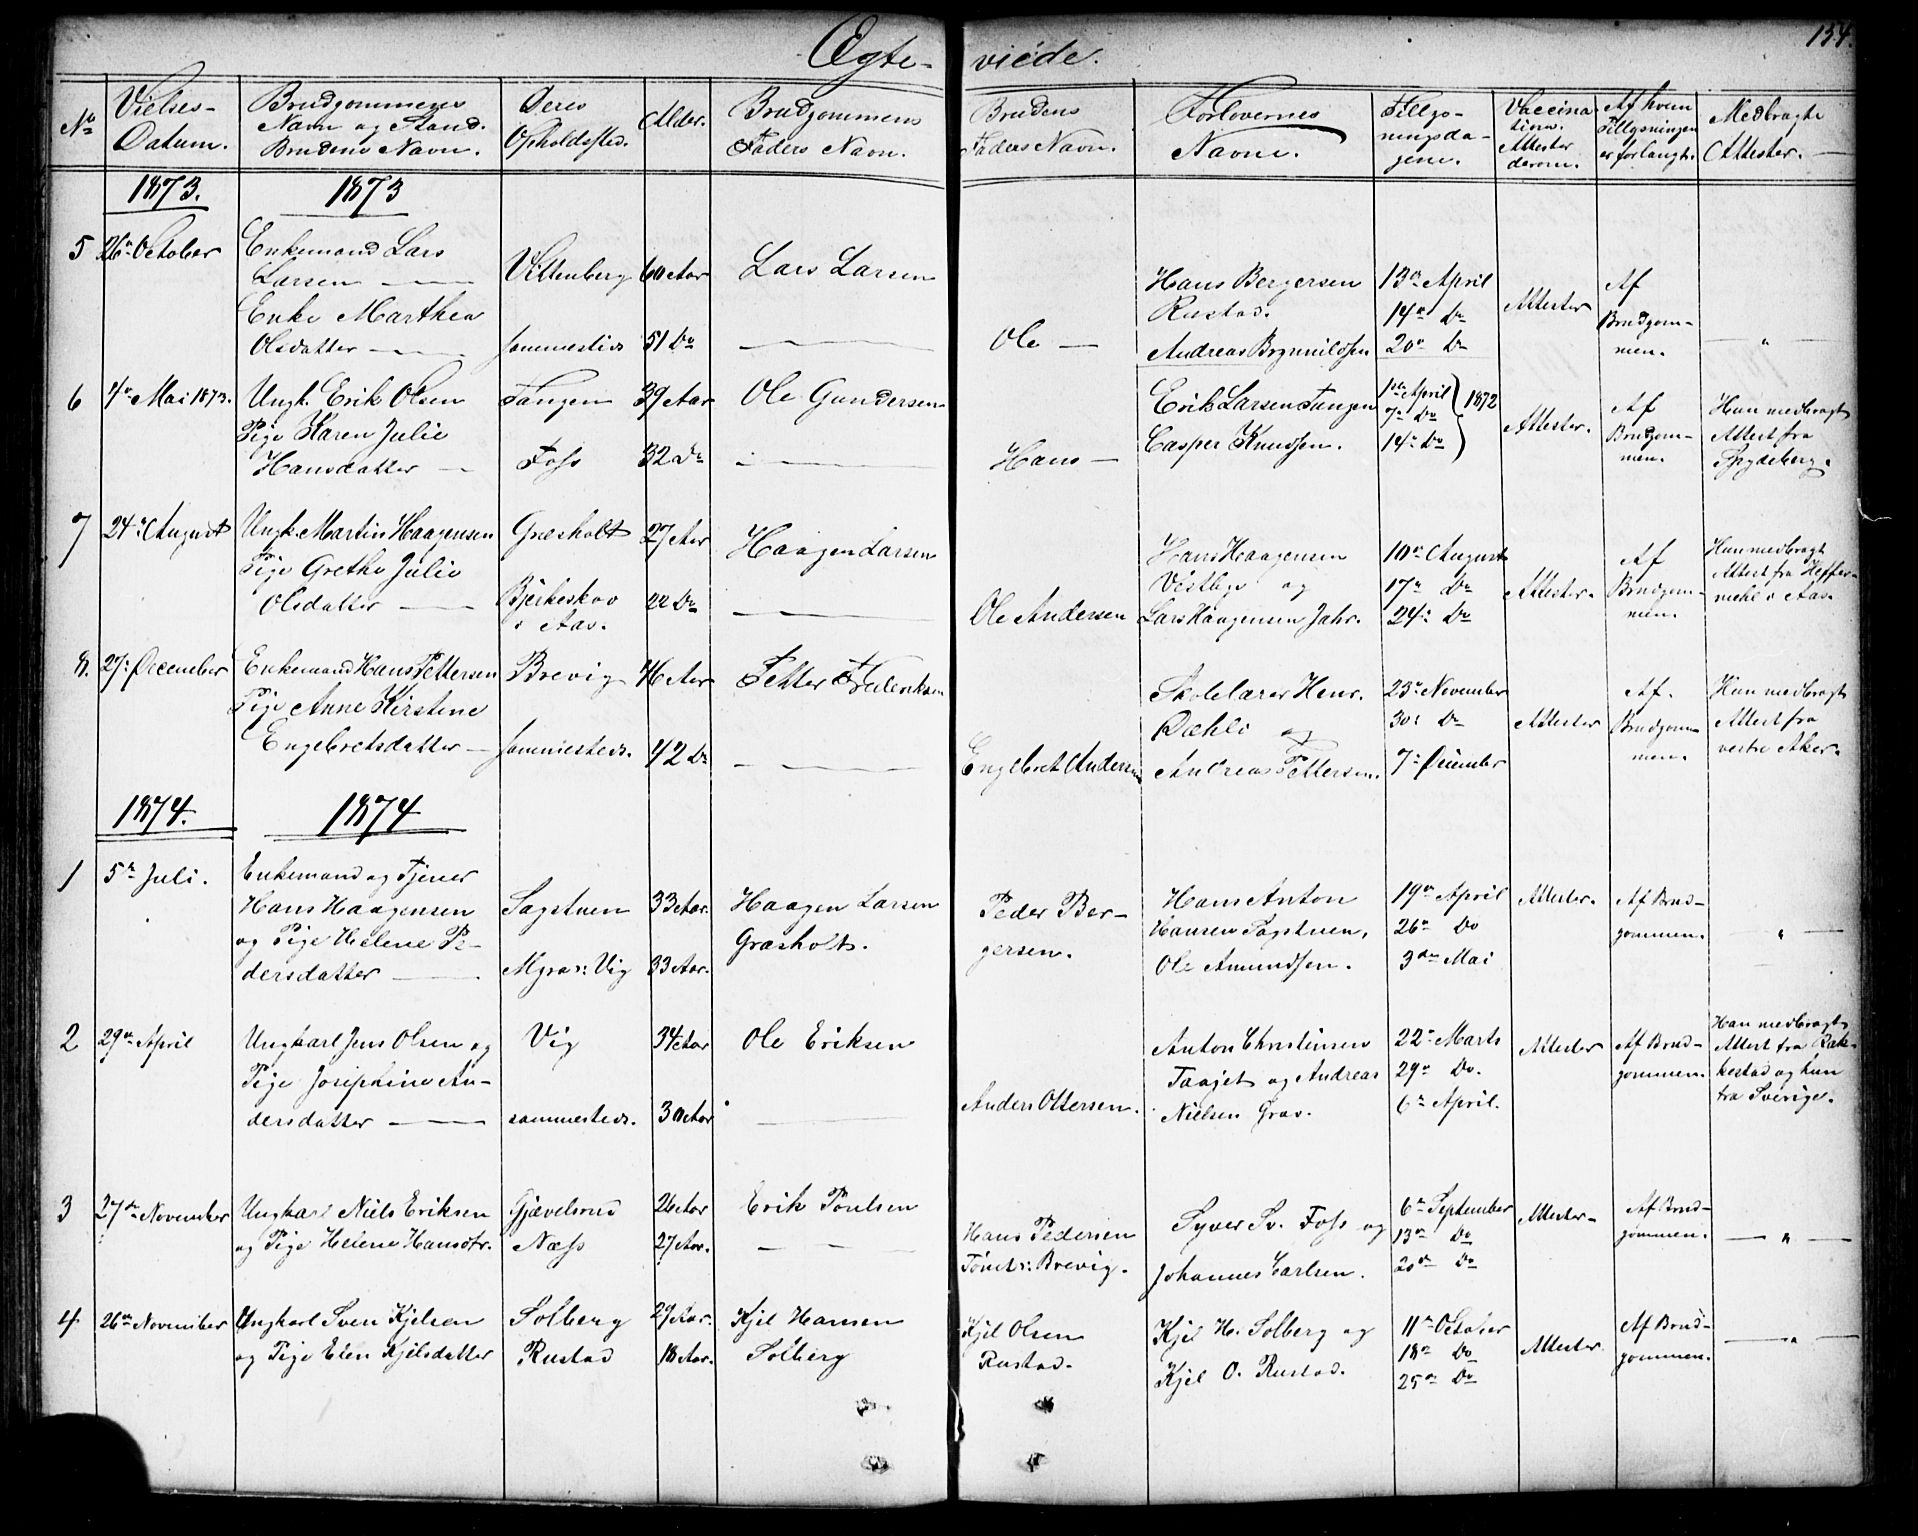 Ægte-viede.
134.
No
Vielses-
Datum.
Brudgommens
Navn og Stand.
Brudens Navn.
Deres
Opholdssted.
Alder.
Brudgommens
Faders Navn.
Brudens
Faders Navn.
Forlovernes
Navne.
Tillys-
ningsda-
gene.
Vaccina
tions
Attester
derom.
Af hvem
Tillysningen
er forlangt.
Medbragte
Attester.
1873. 1873
5 26de October
Enkemand Lars
Larsen
Enke Marthea
Olsdatter
Viltenberg
sammesteds
60 Aar
51 Do
Lars Larsen
Ole
Hans Bergersen
Rustad.
Andreas Brynnildsen
13de April
14de Do
20de Do
Attester
Af
Brudgom-
men.
"
6 4de Mai 1873.
Ungk. Erik Olsen
Pige Karen Julie
Hansdatter
Tangen
Foss
39 Aar
32 Do
Ole Gundersen
Hans
Erik Larsen Tangen
Casper Knudsen.
1ste April
7de Do
14de Do
1872
Attester.
Af
Brudgom-
men.
Han medbragt
Attest fra
Spydeberg.
7 24de August
Ungk. Martin Haagensen
Pige Grethe Julie
Olsdatter
Græsholt
Bjerkeskov
i Aas.
27 Aar
22 Do
Haagen Larsen
Ole Andersen
Hans Haagensen
Vestbye og
Lars Haagensen Jahr.
10de August
17de Do
24de Do
Attester.
Af
Brudgom-
men.
Hun medbragt
Attest fra
i Aas.
8. 27de December
Enkemand Hans Pettersen
Pige Anne Kirstine
Engebretsdatter
Brevig
sammesteds.
46 Aar
42 Do
Petter Frederiksen
Engebret Andersen
Skolelærer Henr.
Dæhli og
Andreas Pettersen.
23de November
30te Do
7de December
Attester
Af
Brudgom-
men.
Han medbragt
Attest fra
vestre Aker.
1874. 1874
1 5te Juli.
Enkemand og Tjener
Hans Haagensen
og Pige Helene Pe-
dersdatter
Sagstuen
Vig
33 Aar.
33 Aar.
Haagen Larsen
Græsholt.
Peder Ber-
gersen.
Hans Anton
Hansen Sagstuen,
Ole Amundsen.
19de April
26de Do
3die Mai
Attester.
Af Brud-
gommen.
"
2 29de April
Ungkarl Jens Olsen og
Pige Josephine An-
dersdatter
Vig
sammesteds.
34 Aar
30 Aar
Ole Eriksen
Anders Ottersen.
Anton Christensen
Taajet og Andreas
Nielsen Grav.
22de Marts
29de Do.
6te April.
Attester
Af Brud-
gommen.
Han medbragt
Attest fra Rak-
kestad og hun
fra Sverige.
3 27de November
Ungkarl Niels Eriksen
og Pige Helene Hansdtr.
Gjævelsrud
Næss
26 Aar
27 Aar.
Erik Poulsen
Hans Pedersen
Brevig.
Syver Sv. Foss og
Johannes Carlsen.
6te September
13de Do
20de Do
Attester
Af Brud-
gommen.
"
4 26de November
Ungkarl Sven Kjelsen
og Pige Elen Kjelsdatter
Solberg
Rustad
29 Aar.
18 Aar.
Kjel Hansen
Solberg
Kjel Olsen
Rustad.
Kjel H. Solberg og
Kjel O. Rustad.
11te October
18de Do
25de Do
Attester
Af Brud-
gommen.
"